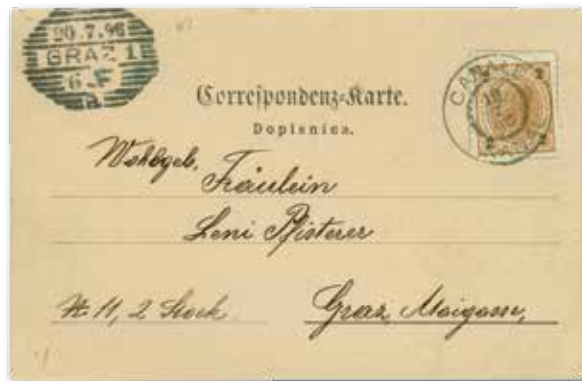 20.7.98
GRAZ 1
6-F
a
Correspondenz-Karte.
Dopisnica.
Wohlgeb.
Fräulein
Leni Pfisterer
№ 11, 2 Stock
Graz, Maigasse,